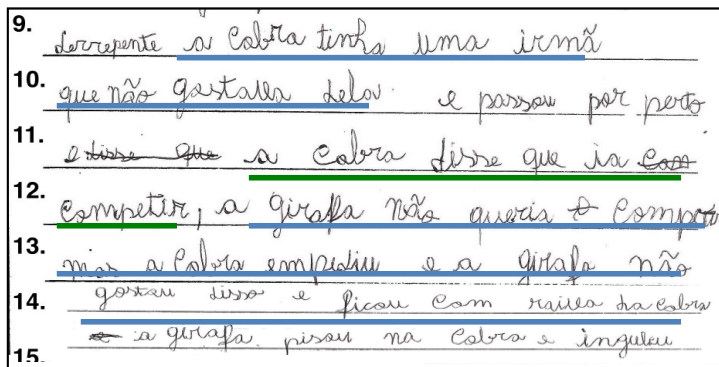 9. derrepente a cobra tinha uma irmã
10. que não gostava dela. e passou por perto
11. e disse que a cobra disse que ia com
12. competir, a girafa não queria competir
13. mas a cobra empediu e a girafa não
14. gostou disso e ficou com raiva da cobra
a girafa. pisou na cobra e inguliu
15.